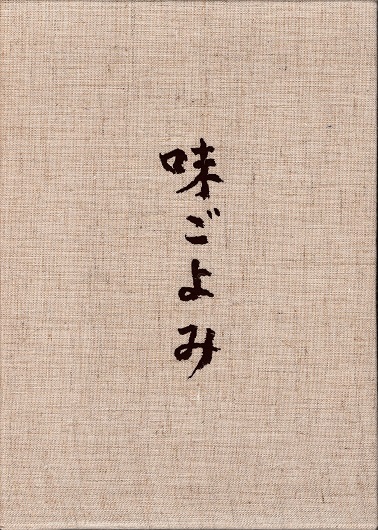 味ごよみ